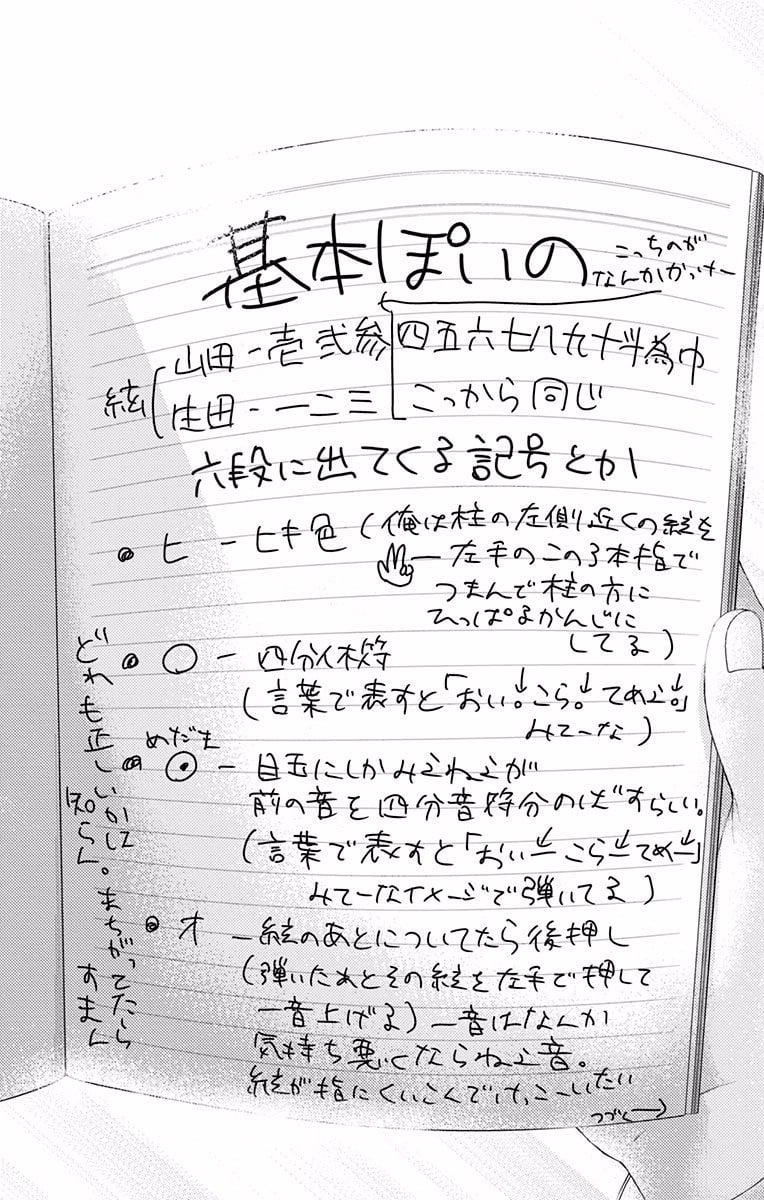 基本ぽいの
こっちのが
なんかかっけー
絃
山田-壱弐参
四五六七八九十斗為巾
生田-一二三
こっから同じ
六段に出てくる記号とか
・ヒ-ヒキ色(俺は柱の左側近くの絃を
-左手のこの3本指で
つまんで柱の方に
ひっぱるかんじに
してる)
・○-四分休符
(言葉で表すと「おい。↓こら。↓てめえ。↓」
みてーな)
めだま
・⦿-目玉にしかみえねえが
前の音を四分音符分のばすらしい。
(言葉で表すと「おい― こら―てめ―」
みてーなイメージで弾いてる)
・オ-絃のあとについてたら後押し
(弾いたあとその絃を左手で押して
一音上げる)一音はなんか
気持ち悪くならねえ音。
絃が指にくいこんでけっこーいたい
つづく→
どれも正しいかして
知らん。まちがってたら
すまん